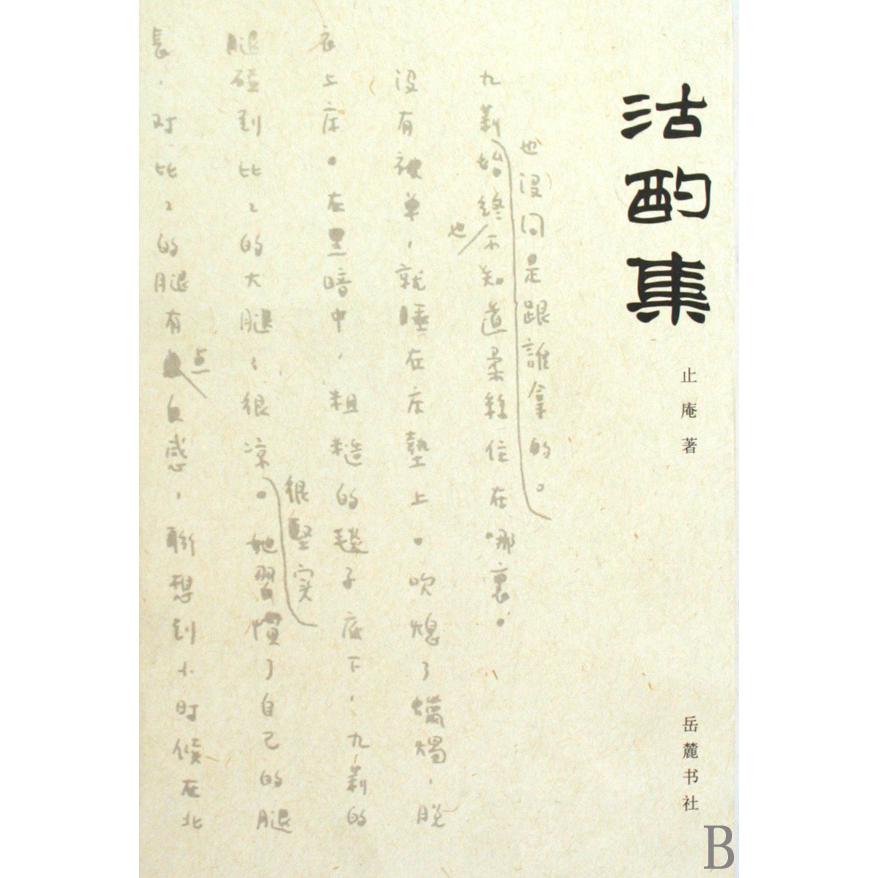 沽酌集
止庵著
岳麓书社
也没问是跟誰拿的。
九莉始終也不知道柔絲住在哪裏。
没有被单，就睡在床墊上。吹熄了蠟燭，脱
衣上床。在黑暗中，粗糙的毯子底下，九莉的
腿碰到比比的大腿，很凉。她習慣了自己的腿
很堅实
長，对比比的腿有点反感，聯想到小时候在北
B